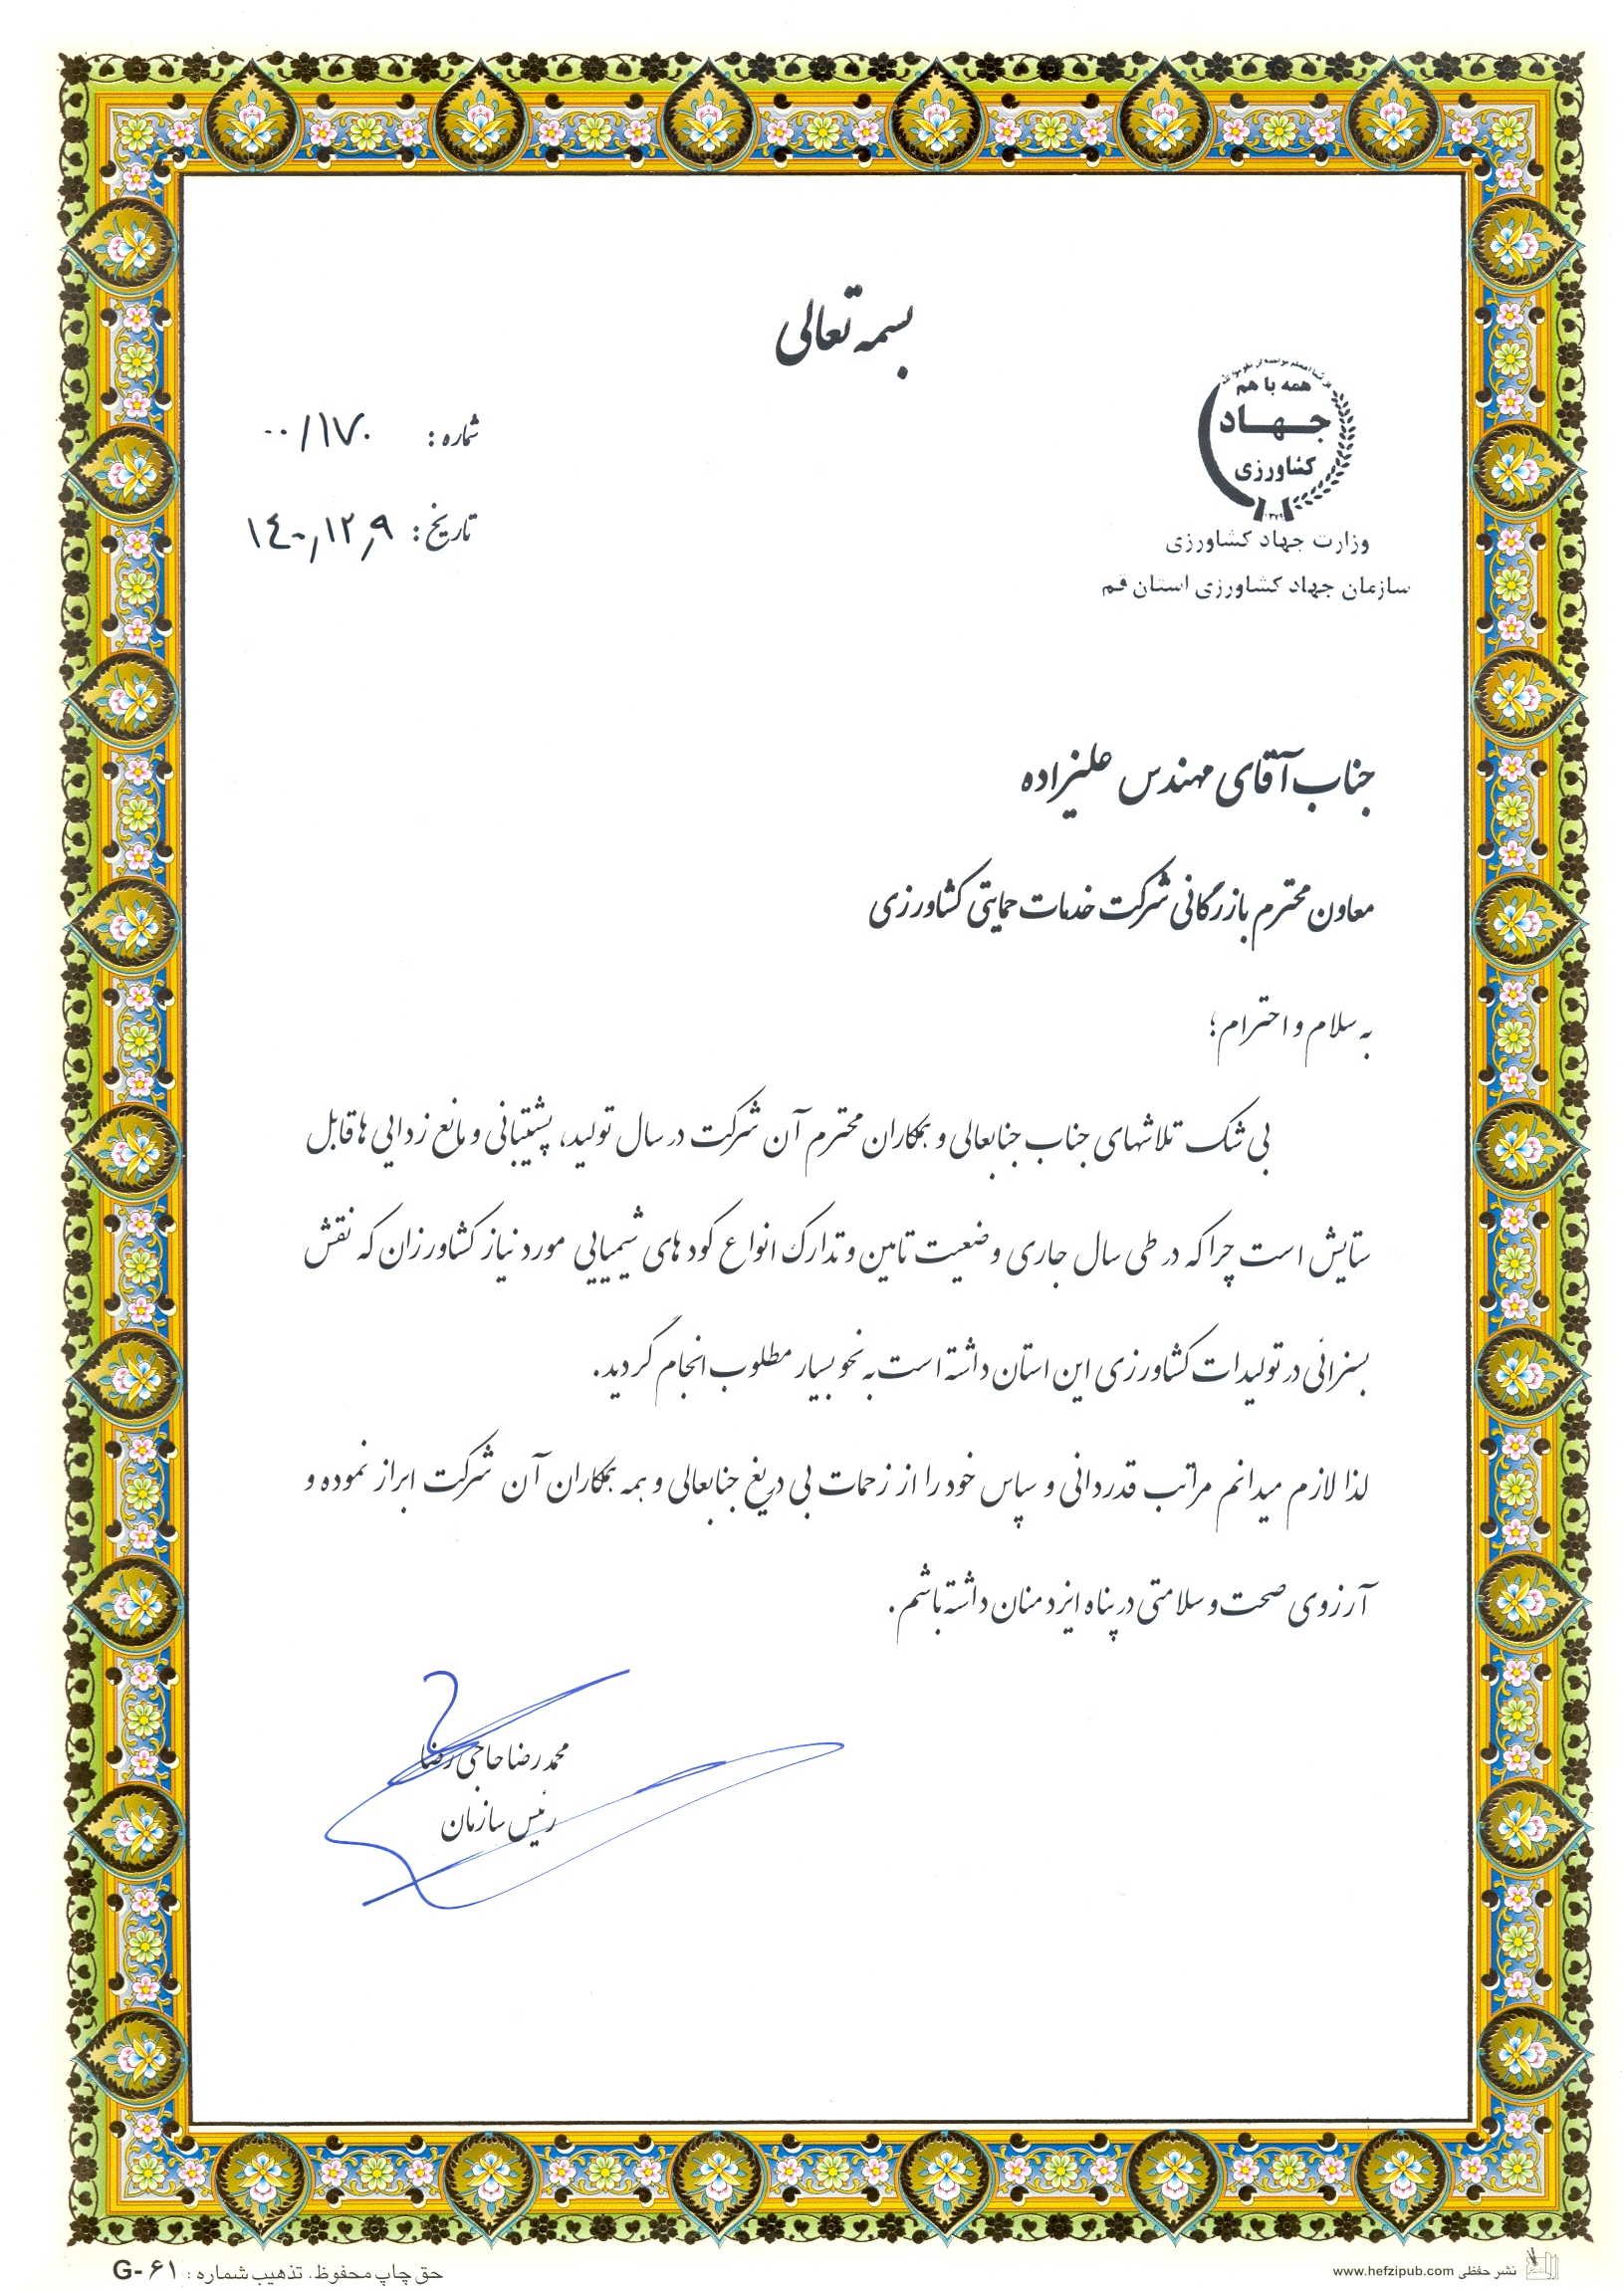 بسمه تعالی
همه با هم
جهاد
کشاورزی
۱۳۷۹
وزارت جهاد کشاورزی
سازمان جهاد کشاورزی استان قم
شماره: ۰۰/۱۷۰
تاریخ: ۱۴۰۰,۱۲,۹
جناب آقای مهندس علیزاده
معاون محترم بازرگانی شرکت خدمات حمایتی کشاورزی
به سلام و احترام؛
بی شک تلاشهای جناب جنابعالی و همکاران محترم آن شرکت در سال تولید، پشتیبانی و مانع زدایی ها قابل
ستایش است چرا که در طی سال جاری وضعیت تامین و تدارک انواع کود های شیمیایی مورد نیاز کشاورزان که نقش
بسزائی در تولیدات کشاورزی این استان داشته است به نحو بسیار مطلوب انجام گردید.
لذا لازم میدانم مراتب قدردانی و سپاس خود را از زحمات بی دریغ جنابعالی و همه همکاران آن شرکت ابراز نموده و
آرزوی صحت و سلامتی در پناه ایزد منان داشته باشم.
محمد رضا حاجی رضا
رئیس سازمان
حق چاپ محفوظ. تذهیب شماره: G-۶۱
نشر حفظی www.hefzipub.com